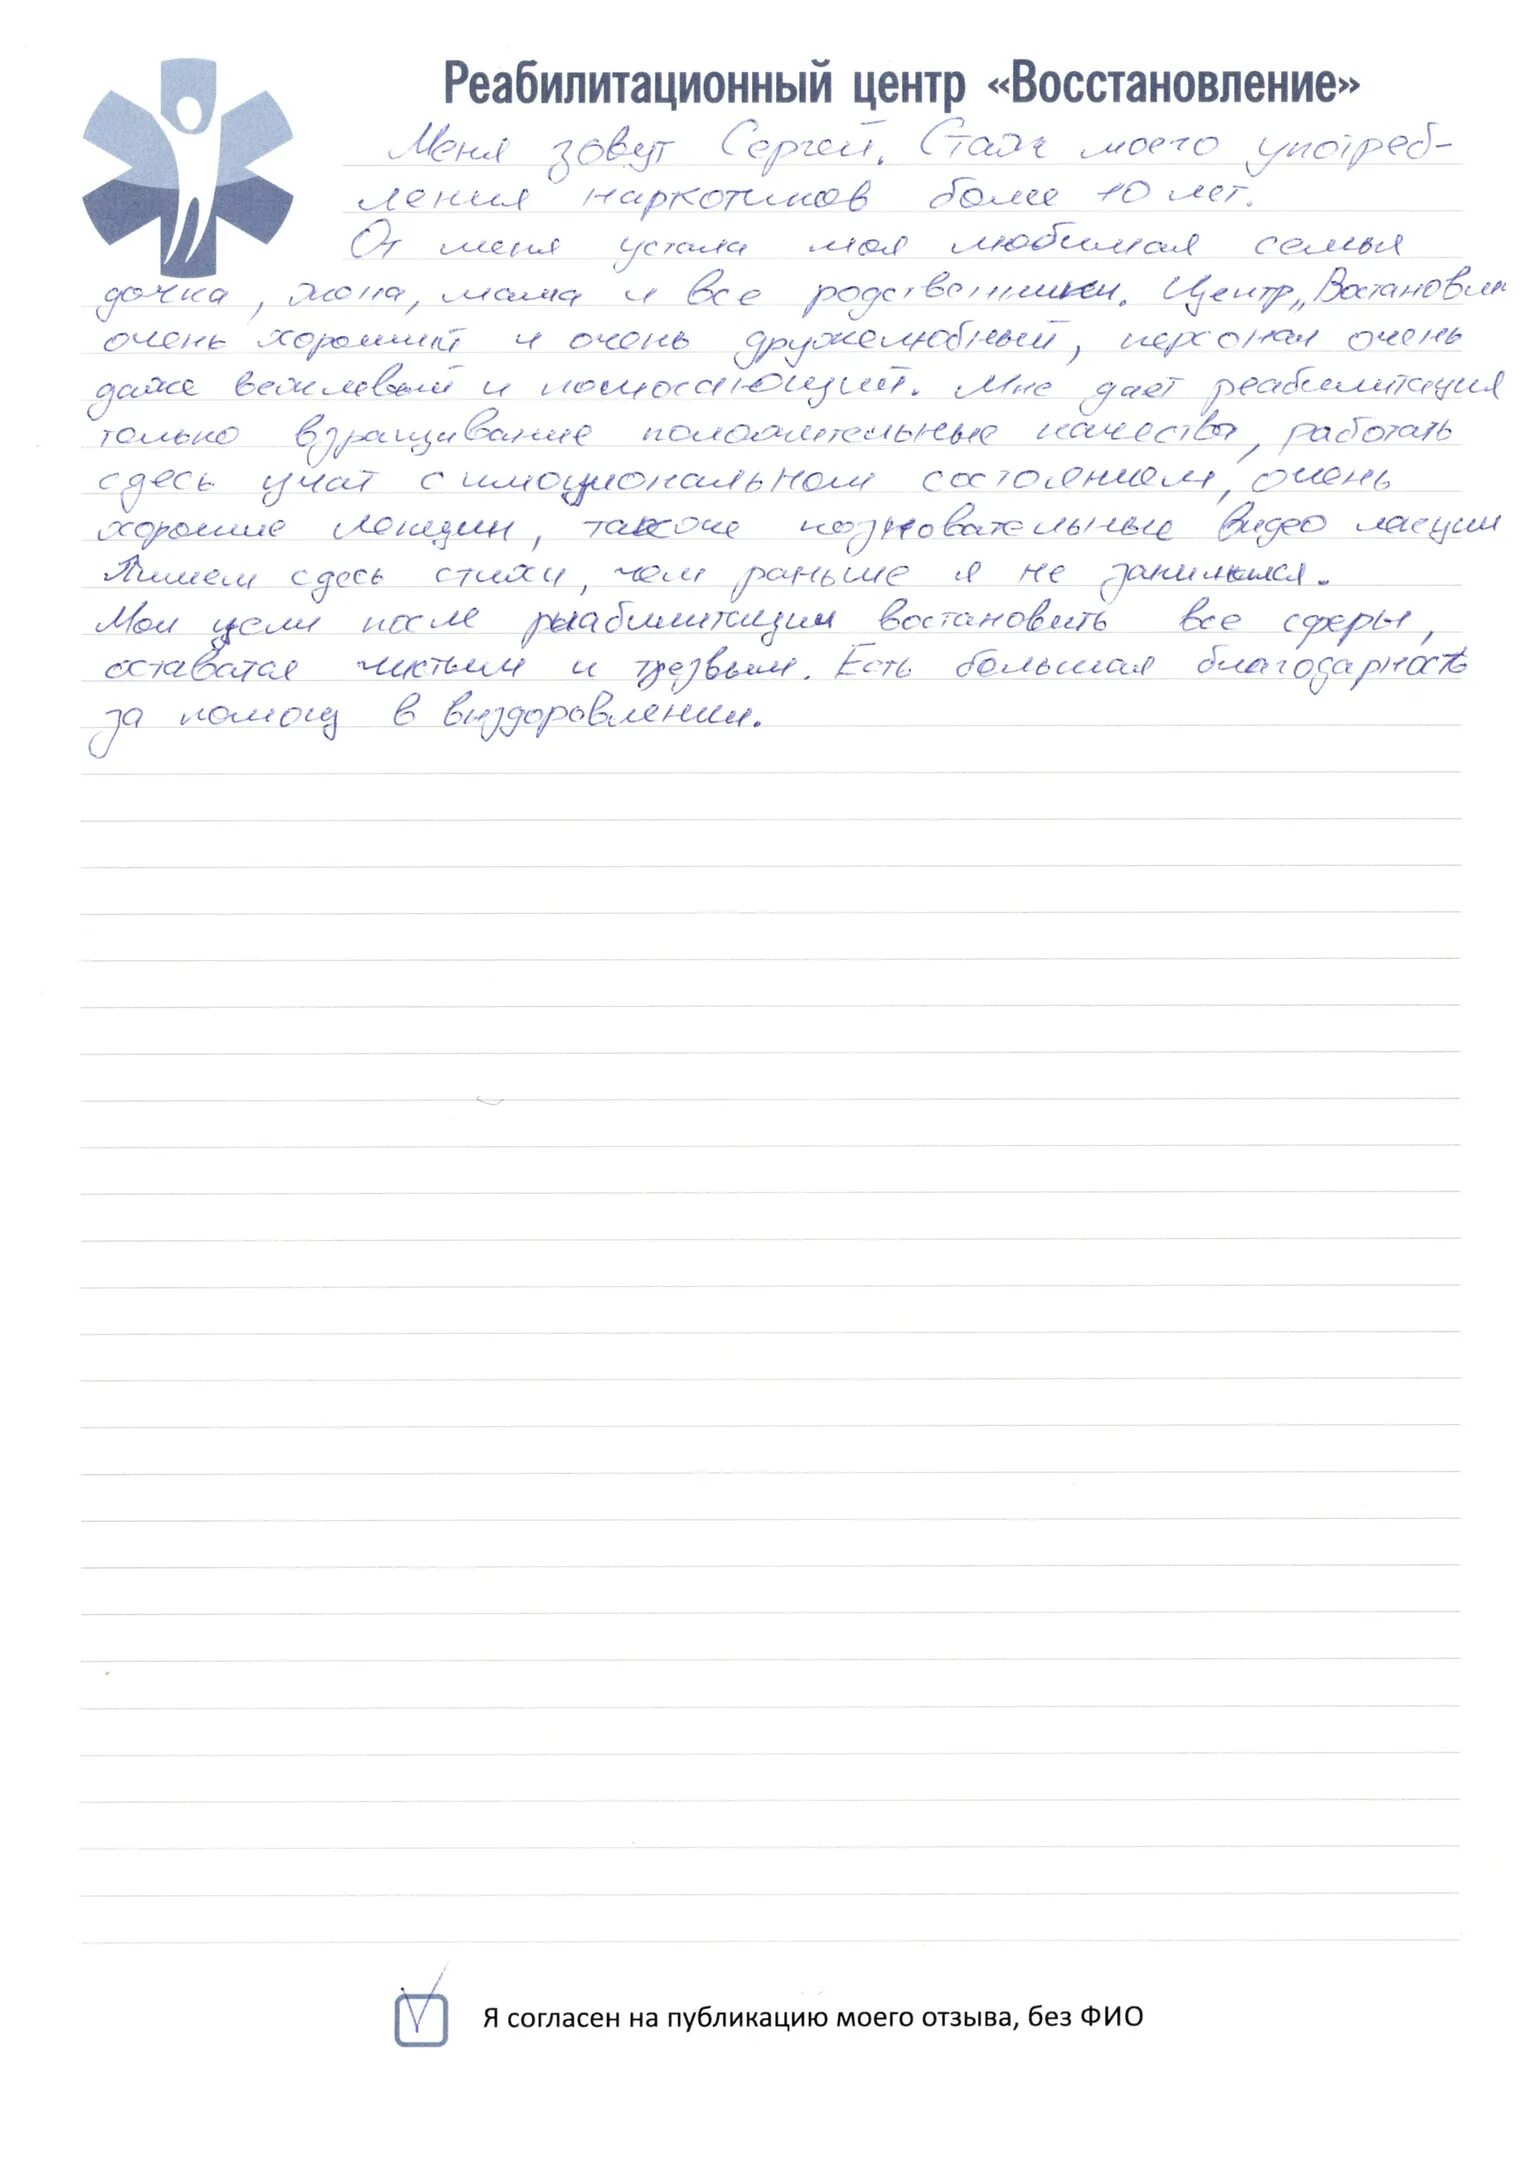 Реабилитационный центр «Восстановление»
Меня зовут Сергей. Стаж моего употреб-
ления наркотиков более 10 лет.
От меня устала моя любимая семья
дочка, жона, мама и все родственники. Центр „Востановлен
очень хороший и очень дружелюбный, персонал очень
даже вежлевый и помогающий. Мне дает реабилитация
только взращивание положительные качества, работать
сдесь учат с имоциональном состоянием, очень
хорошие лекции, также познавательные видео лекции
Пишем сдесь стихи, чем раньше я не занимался.
Мои цели после реабилитации востановить все сферы,
оставатся чистым и трезвым. Есть большая благодарность
за помощ в выздоровлении.
Я согласен на публикацию моего отзыва, без ФИО